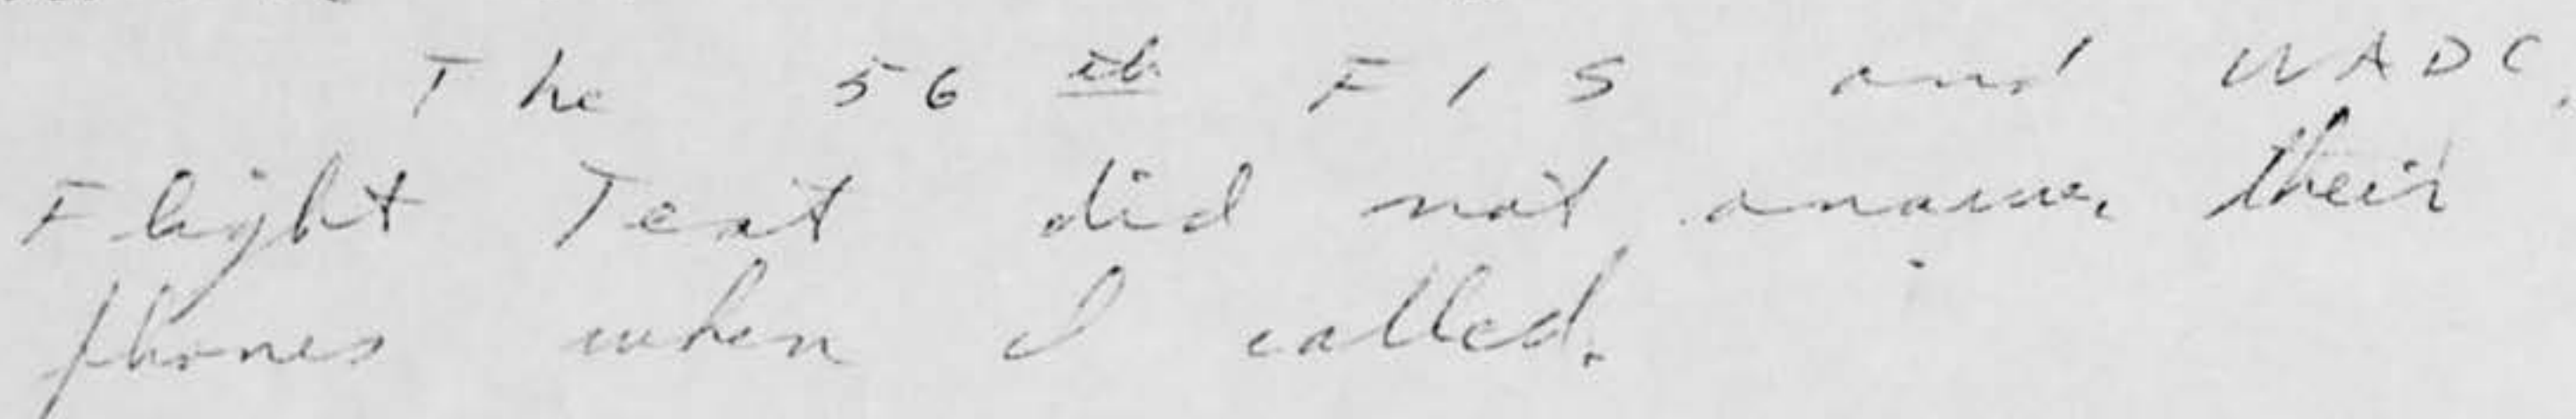 The 56th FIS and WADC
Flight Test did not answer their
phones when I called.